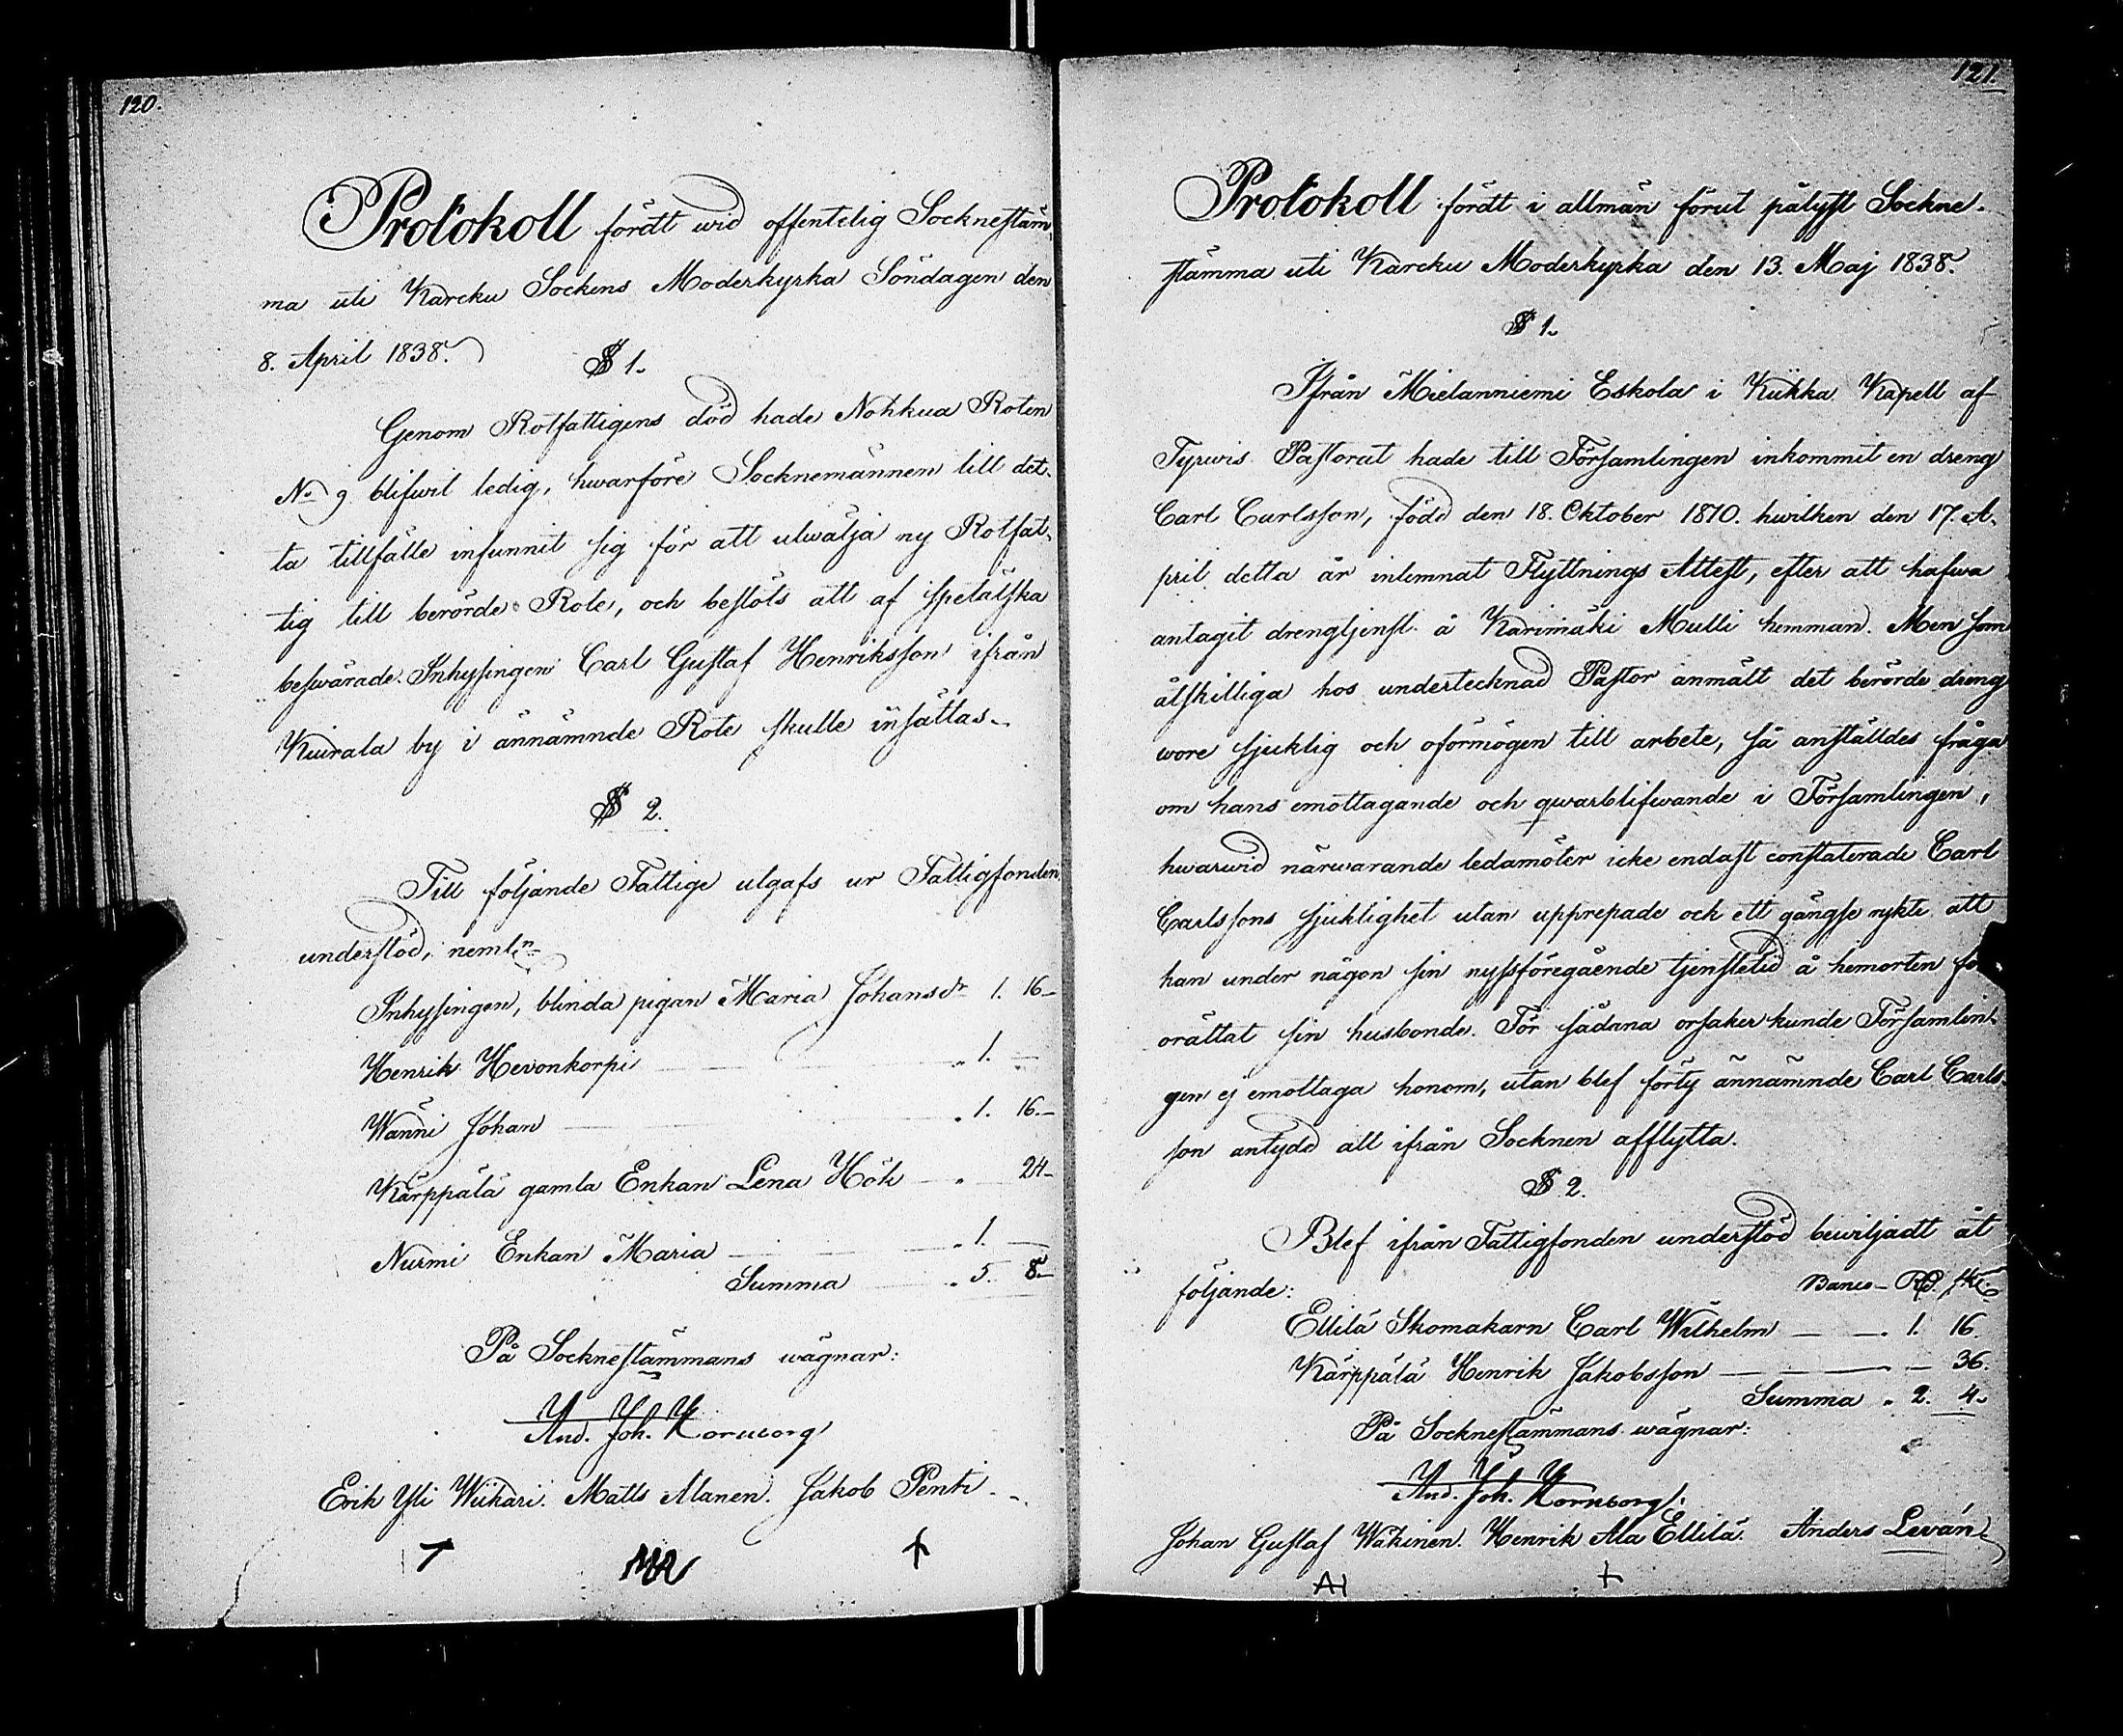 120.
Protokoll fördt wid offentelig Sockneståm,
ma uti Karcku Sockens Moderkyrka Söndagen den
8. April 1838.
§ 1.
Genom Rotfattigens död hade Nohkua Roten
No 9 blifwit ledig, hwarföre Socknemännen till det,
ta tillfälle infunnit sig för att utwälja ny Rotfat,
tig till berörde Rote, och beslöts att af spetälska
beswärade Inhysingen Carl Gustaf Henriksson ifrån
Kuirala by i ännämnde Rote skulle insättas.
§ 2.
Till följande Fattige utgafs ur Fattigfonden
understöd, nemln
Inhysingen, blinda pigan Maria Johansdr 1. 16–
Henrik Hevonkorpi — „ 1. —
Wänni Johan — „ 1. 16.–
Kärppälä gamla Enkan Lena Hök — „ 24–
Nurmi Enkan Maria — „ 1. —
Summa — „ 5. 8–
På Sockneståmmans wägnar:
And. Joh. Kornborg
Erik Yli Wiikari. Matts Alanen. Jakob Penti.
121.
Protokoll fördt i allmän förut pålyst Sockne-
stämma uti Karcku Moderkyrka den 13. Maj 1838.
§ 1.
Ifrån Mielanniemi Eskola i Kiikka Kapell af
Tyrwis Pastorat hade till Församlingen inkommit en dreng
Carl Carlsson, född den 18. Oktober 1810. hwilken den 17. A,
pril detta år inlemnat Flyttnings Attest, efter att hafwa
antagit drengtjenst å Karimäki Mulli hemman. Men som
åtskilliga hos undertecknad Pastor anmält det berörde dreng
wore sjuklig och oförmögen till arbete, så anställdes fråga
om hans emottagande och qwarblifwande i Församlingen,
hwarwid närwarande ledamöter icke endast constaterade Carl
Carlssons sjuklighet utan upprepade ock ett gängse rykte att
han under någon sin nyssföregående tjenstetid å hemorten
orättat sin husbonde. För sådana orsaker kunde Församlin,
gen ej emottaga honom, utan blef förty ännämnde Carl Carls
son antydd att ifrån Socknen afflytta.
§ 2.
Blef ifrån Fattigfonden understöd bewiljadt åt
följande: Banco – Rd. sk.
Ellilä Skomakarn Carl Wilhelm — „ 1. 16.
Kärppälä Henrik Jakobsson — 36.
Summa „ 2. 4.
På Sockneståmmans wägnar:
And. Joh. Kornborg.
Johan Gustaf Wäkinen. Henrik Ala Ellilä. Anders Leván